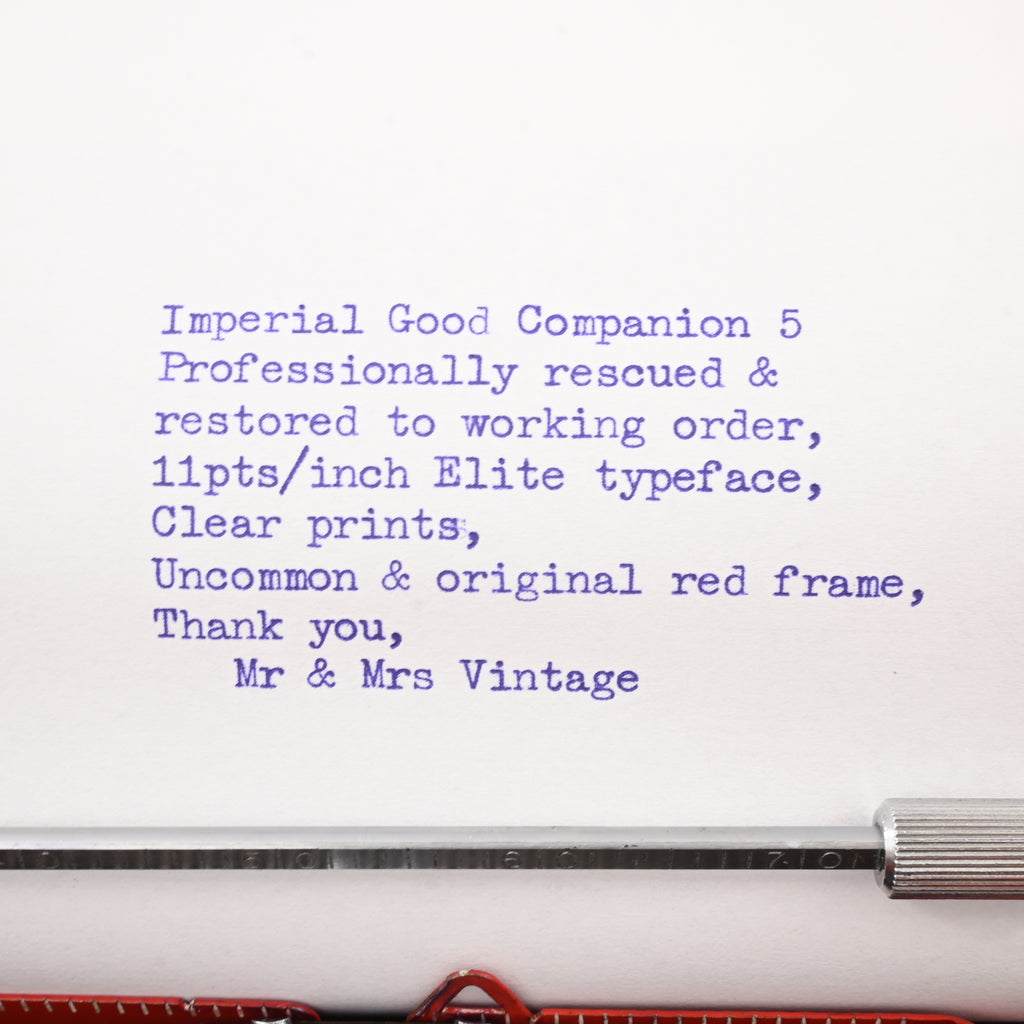 Imperial Good Companion 5
Professionally rescued &
restored to working order,
11pts/inch Elite typeface,
Clear prints,
Uncommon & original red frame,
Thank you,
Mr & Mrs Vintage
60 70